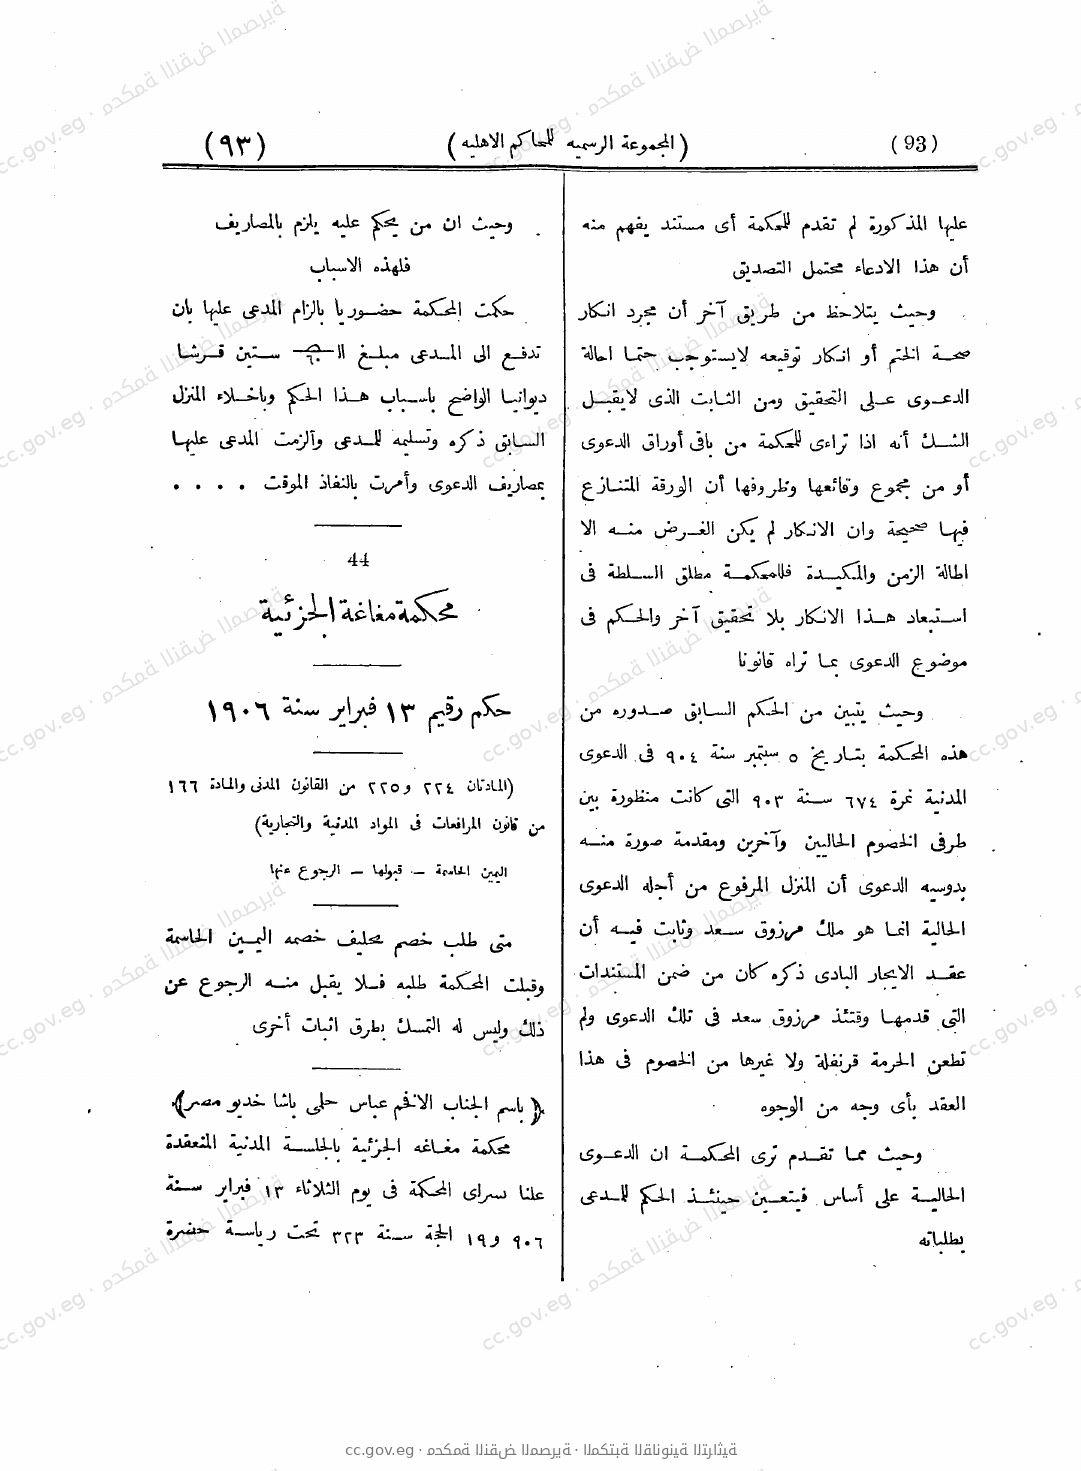 (93) (المجموعة الرسميه للمحاكم الاهليه) (٩٣)
عليها المذكورة لم تقدم للمحكمة أى مستند يفهم منه
أن هذا الادعاء محتمل التصديق
وحيث يتلاحظ من طريق آخر أن مجرد انكار
صحة الختم أو انكار توقيعه لايستوجب حتما احالة
الدعوى على التحقيق ومن الثابت الذى لايقبل
الشك أنه اذا تراءى للمحكمة من باقى أوراق الدعوى
أو من مجموع وقائعها وظروفها أن الورقة المتنازع
فيها صحيحة وان الانكار لم يكن الغرض منه الا
اطالة الزمن والمكيدة فللمحكمة مطلق السلطة فى
استبعاد هذا الانكار بلا تحقيق آخر والحكم فى
موضوع الدعوى بما تراه قانونا
وحيث يتبين من الحكم السابق صدوره من
هذه المحكمة بتاريخ ٥ سبتمبر سنة ٩٠٤ فى الدعوى
المدنية نمرة ٦٧٤ سنة ٩٠٣ التى كانت منظورة بين
طرفى الخصوم الحاليين وآخرين ومقدمة صورة منه
بدوسيه الدعوى أن المنزل المرفوع من أجله الدعوى
الحالية انما هو ملك مرزوق سعد وثابت فيه أن
عقد الايجار البادى ذكره كان من ضمن المستندات
التى قدمها وقتئذ مرزوق سعد فى تلك الدعوى ولم
تطعن الحرمة قرنفلة ولا غيرها من الخصوم فى هذا
العقد بأى وجه من الوجوه
وحيث مما تقدم ترى المحكمة ان الدعوى
الحالية على أساس فيتعين حينئذ الحكم للمدعى
بطلباته
وحيث ان من يحكم عليه يلزم بالمصاريف
فلهذه الاسباب
حكمت المحكمة حضوريا بالزام المدعى عليها بان
تدفع الى المدعى مبلغ الـ ٦٠ ستين قرشا
ديوانيا الواضح باسباب هذا الحكم وباخلاء المنزل
السابق ذكره وتسليمه للمدعى وألزمت المدعى عليها
بمصاريف الدعوى وأمرت بالنفاذ الموقت . . . .
44
محكمة مغاغة الجزئية
حكم رقيم ١٣ فبراير سنة ١٩٠٦
(المادتان ٢٢٤ و٢٢٥ من القانون المدنى والمادة ١٦٦
من قانون المرافعات فى المواد المدنية والتجارية)
اليمين الحاسمة – قبولها – الرجوع عنها
متى طلب خصم تحليف خصمه اليمين الحاسمة
وقبلت المحكمة طلبه فلا يقبل منه الرجوع عن
ذلك وليس له التمسك بطرق اثبات أخرى
(باسم الجناب الافخم عباس حلمى باشا خديو مصر)
محكمة مغاغه الجزئية بالجلسة المدنية المنعقدة
علنا بسراى المحكمة فى يوم الثلاثاء ١٣ فبراير سنة
٩٠٦ و١٩ الحجة سنة ٣٢٣ تحت رياسة حضرة
cc.gov.eg · محكمة النقض المصرية · المكتبة القانونية التراثية